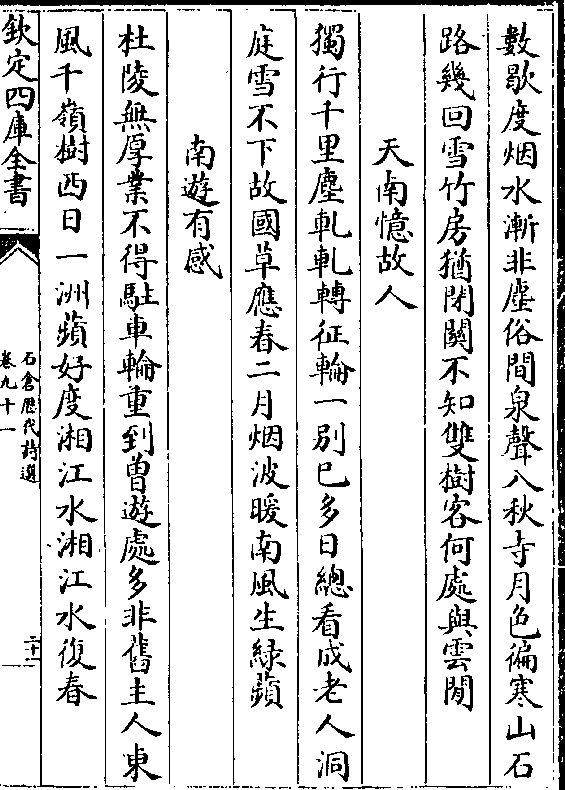 數歇度烟水漸非塵俗間泉聲入秋寺月色徧寒山石
路幾回雪竹房猶閉關不知雙樹客何處與雲閒
天南憶故人
獨行千里塵軋軋轉征輪一別已多日總看成老人洞
庭雪不下故國草應春二月烟波暖南風生緑蘋
南遊有感
杜陵無厚業不得駐車輪重到曾遊處多非舊主人東
風千嶺樹西日一洲蘋好度湘江水湘江水復春
欽定四庫全書
石倉歴代詩選
卷九十一